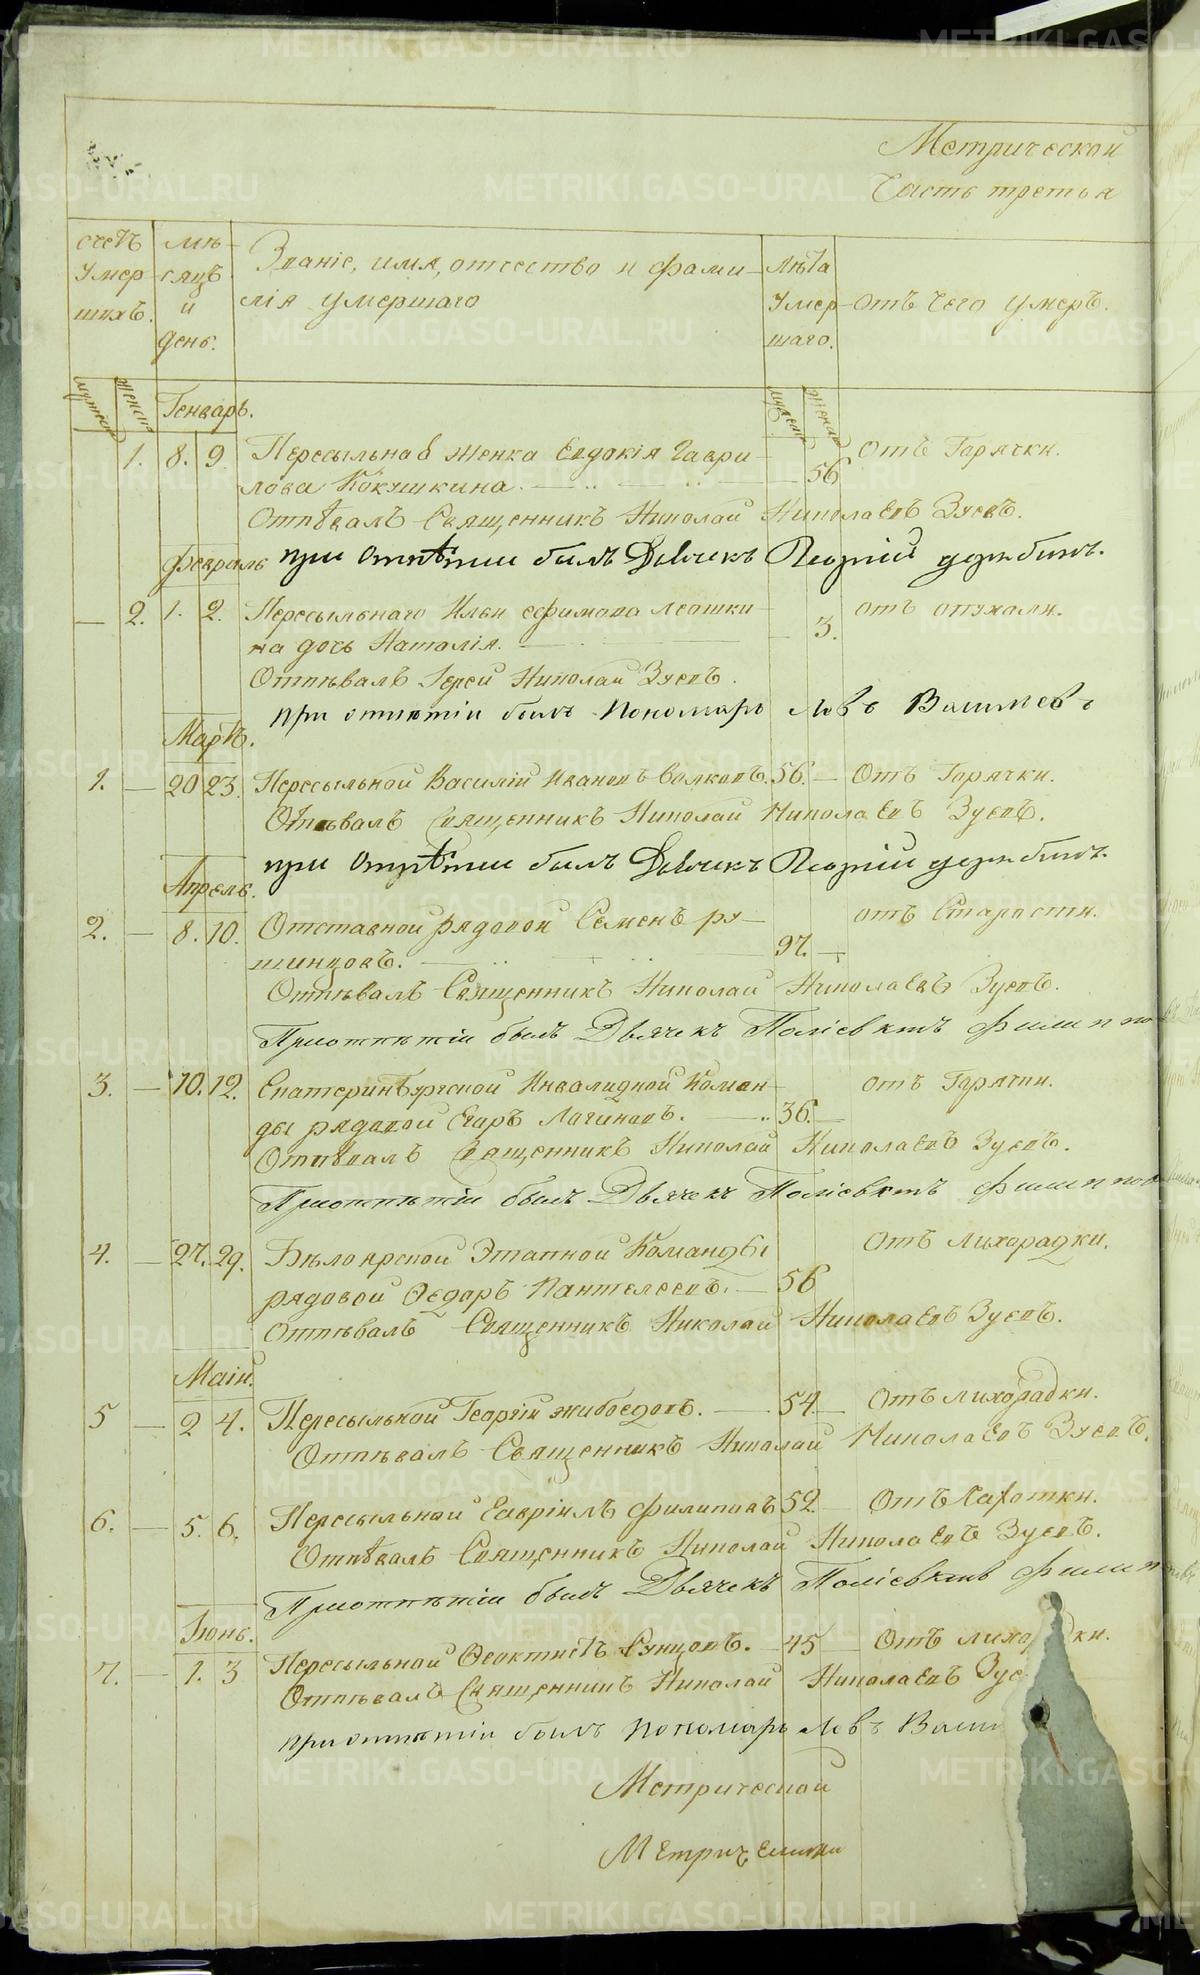 Метрической
Часть третья
счетъ умершихъ.
мѣсяцъ и день.
Званіе, имя, отчество и фамилія умершаго
Лѣта умершаго.
отъ чего умеръ.
мужеск женск
Генварь.
мужеск женск
1. 8. 9. Пересыльная женка Евдокія Гаври
лова Кокушкина. 56 отъ Горячки.
Отпѣвалъ Священникъ Николай Николаевъ Зуевъ.
Февраль
при отпѣтіи былъ Дьячекъ Георгій
— 2. 1. 2. Пересыльнаго Ильи Ефимова
на дочь Наталія. 3. отъ опухоли.
Отпѣвалъ Іерей Николай Зуевъ.
при отпѣтіи былъ Пономарь Левъ Васильевъ
Мартъ.
1. — 20 23. Пересыльной Василій Ивановъ Волковъ. 56. — Отъ Горячки.
Отпѣвалъ Священникъ Николай Николаевъ Зуевъ.
при отпѣтіи былъ Дьячекъ Георгій
Апрель.
2. — 8. 10. Отставной рядовой Семенъ ру—
шинцовъ. 97. — отъ Старости.
Отпѣвалъ Священникъ Николай Николаевъ Зуевъ.
При отпѣтіи былъ Дьячекъ Поліевктъ Филиппо
3. — 10. 12. Екатеринбургской Инвалидной Коман—
ды рядовой Егоръ Логиновъ. 36. — отъ Горячки.
Отпѣвалъ Священникъ Николай Николаевъ Зуевъ.
При отпѣтіи былъ Дьячекъ Поліевктъ Филиппов
4. — 27. 29. Бѣлоярской Этапной Команды
рядовой Ѳедоръ Пантелеевъ. — 56 отъ лихорадки.
Отпѣвалъ Священникъ Николай Николаевъ Зуевъ.
Маій.
5 — 2 4. Пересыльной Георгій Жибоедовъ. — 54. — Отъ лихорадки.
Отпѣвалъ Священникъ Николай Николаевъ Зуевъ.
6. — 5. 6. Пересыльной Гавріилъ Филиповъ 52. — Отъ Сахотки.
Отпѣвалъ Священникъ Николай Николаевъ Зуевъ.
При отпѣтіи былъ Дьячекъ Поліевктъ Филип
Іюнь.
7. — 1. 3 Пересыльной Ѳеоктистъ — 45 — Отъ лихо ки.
Отпѣвалъ Священникъ Николай Николаевъ Зуе
при отпѣтіи былъ Пономарь Левъ Васи
Метрической